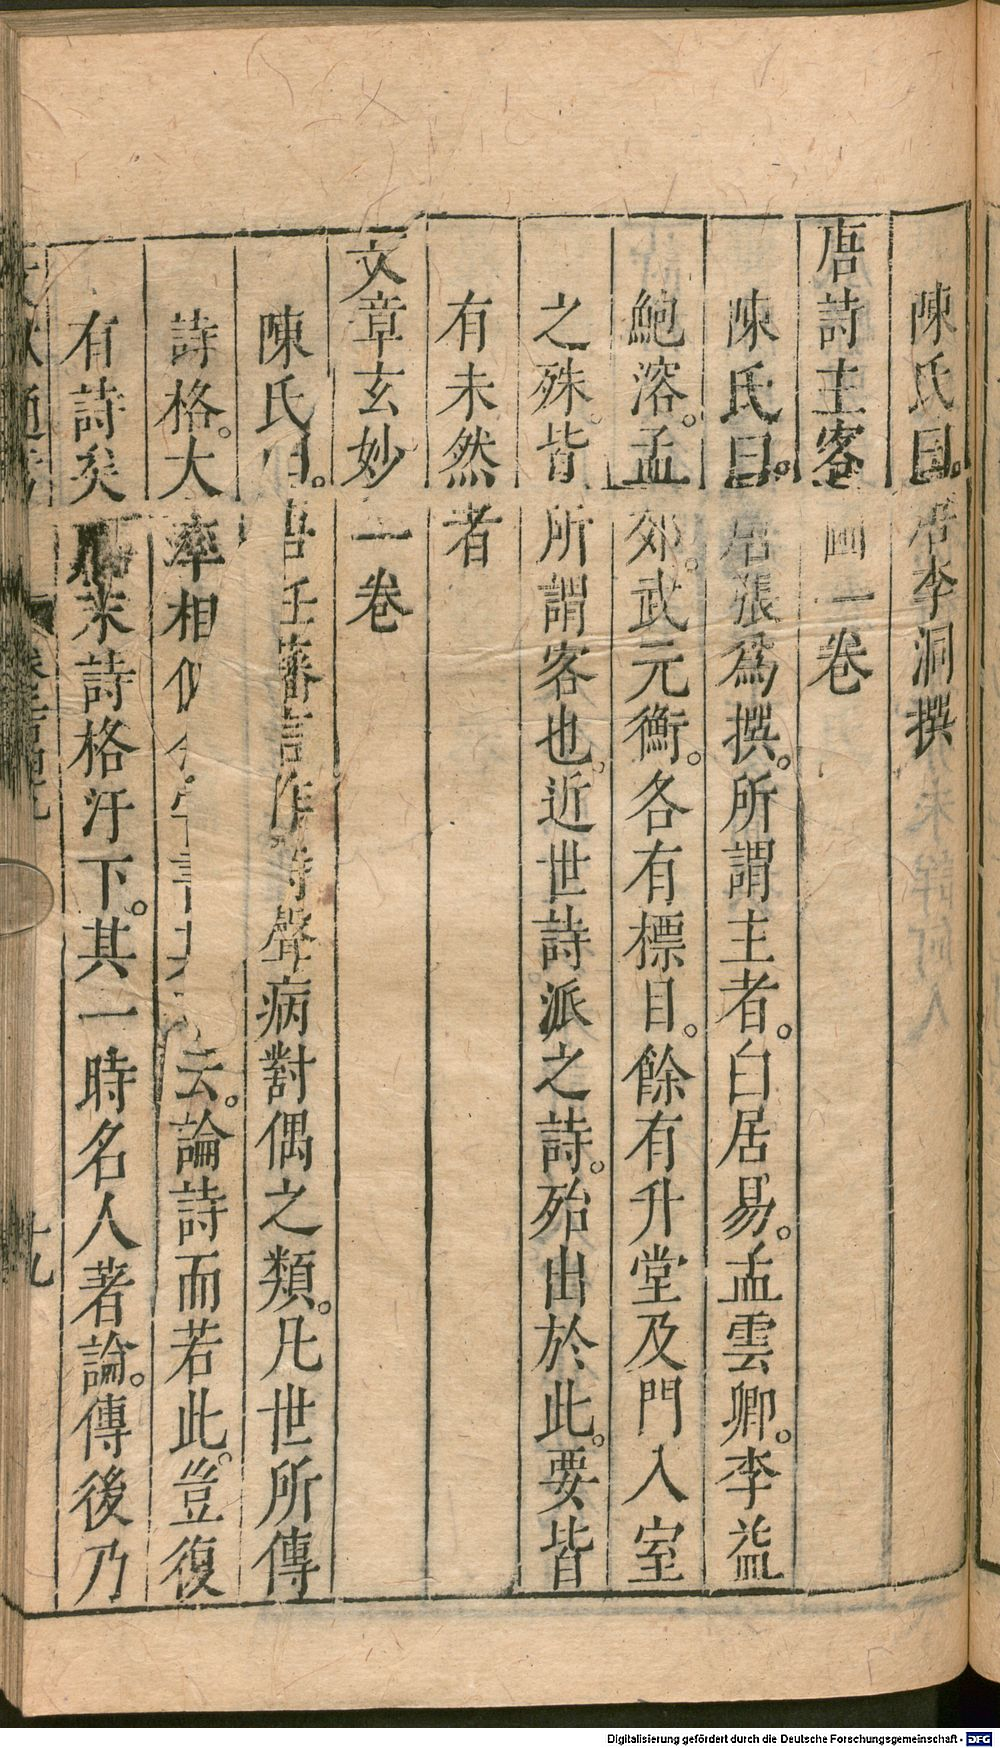 陳氏曰。唐李洞撰
唐詩主客圖一卷
陳氏曰。唐張爲撰。所謂主者。白居易。孟雲卿。李益
鮑溶。孟郊。武元衡。各有標目。餘有升堂及門入室
之殊。皆所謂客也。近世詩派之詩。殆出於此。要皆
有未然者
文章玄妙一卷
陳氏曰。唐任藩言作詩聲病對偶之類。凡世所傳
詩格。大率相似 云。論詩而若此。豈復
有詩矣 末詩格汙下。其一時名人著論。傳後乃
十九
Digitalisierung gefördert durch die Deutsche Forschungsgemeinschaft - DFG